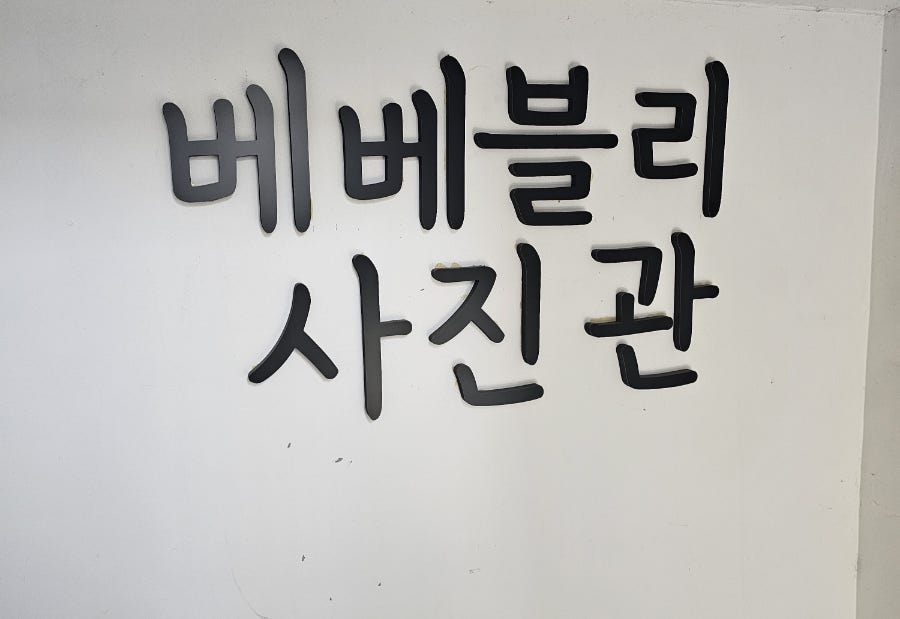 베베블리
사진관